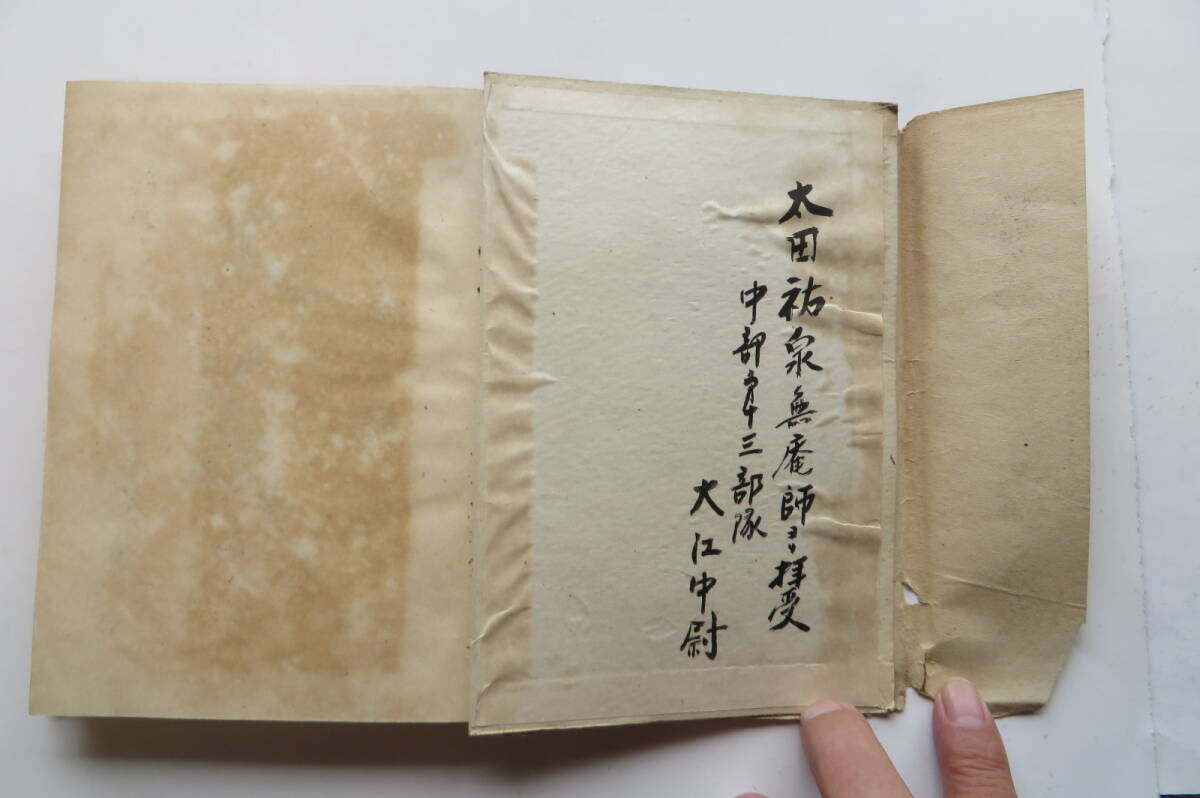 太田祐泉無庵師ヨリ拝受
中部第十三部隊
大江中尉